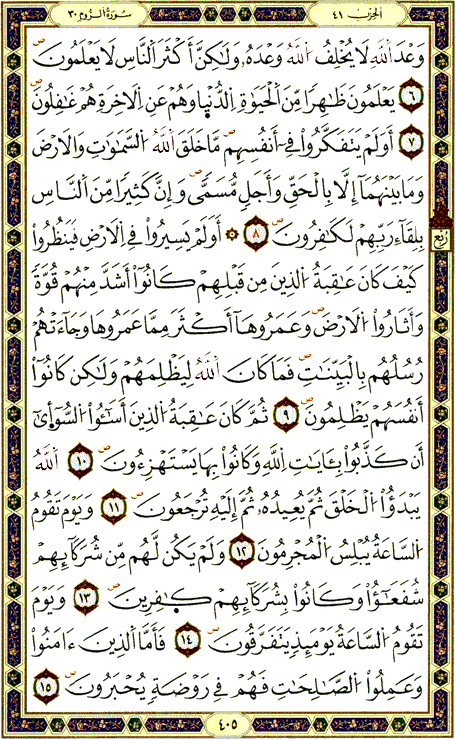 الحزب ٤١
سورة الروم ٣٠
وَعْدَ اَللَّهِ لَا يُخْلِفُ اُللَّهُ وَعْدَهُۥ وَلَٰكِنَّ أَكْثَرَ اَلنَّاسِ لَا يَعْلَمُونَ
٦ يَعْلَمُونَ ظَٰهِرًا مِّنَ اَلْحَيَوٰةِ اِلدُّنْيَا وَهُمْ عَنِ اِلَاخِرَةِ هُمْ غَٰفِلُونَ
٧ أَوَلَمْ يَتَفَكَّرُوا۟ فِي أَنفُسِهِم مَّا خَلَقَ اَللَّهُ اُلسَّمَٰوَٰتِ وَالَارْضَ
وَمَا بَيْنَهُمَا إِلَّا بِالْحَقِّ وَأَجَلٍ مُّسَمًّى وَإِنَّ كَثِيرًا مِّنَ اَلنَّاسِ
بِلِقَآءِ رَبِّهِمْ لَكَٰفِرُونَ ٨ ۞ أَوَلَمْ يَسِيرُوا۟ فِي اِلَارْضِ فَيَنظُرُوا۟
ربع
كَيْفَ كَانَ عَٰقِبَةُ اُلذِينَ مِن قَبْلِهِمْ كَانُوٓا۟ أَشَدَّ مِنْهُمْ قُوَّةً
وَأَثَارُوا۟ اُلَارْضَ وَعَمَرُوهَآ أَكْثَرَ مِمَّا عَمَرُوهَا وَجَآءَتْهُمْ
رُسُلُهُم بِالْبَيِّنَٰتِ فَمَا كَانَ اَللَّهُ لِيَظْلِمَهُمْ وَلَٰكِن كَانُوٓا۟
أَنفُسَهُمْ يَظْلِمُونَ ٩ ثُمَّ كَانَ عَٰقِبَةُ اُلذِينَ أَسَٰٓـُٔوا۟ اُلسُّوٓأَىٰٓ
أَن كَذَّبُوا۟ بِـَٔايَٰتِ اِللَّهِ وَكَانُوا۟ بِهَا يَسْتَهْزِءُونَ ١٠ اَللَّهُ
يَبْدَؤُا۟ اُلْخَلْقَ ثُمَّ يُعِيدُهُۥ ثُمَّ إِلَيْهِ تُرْجَعُونَ ١١ وَيَوْمَ تَقُومُ
اُلسَّاعَةُ يُبْلِسُ اُلْمُجْرِمُونَ ١٢ وَلَمْ يَكُن لَّهُم مِّن شُرَكَآئِهِمْ
شُفَعَٰٓؤُا۟ وَكَانُوا۟ بِشُرَكَآئِهِمْ كَٰفِرِينَ ١٣ وَيَوْمَ
تَقُومُ اُلسَّاعَةُ يَوْمَئِذٍ يَتَفَرَّقُونَ ١٤ فَأَمَّا اَلذِينَ ءَامَنُوا۟
وَعَمِلُوا۟ اُلصَّٰلِحَٰتِ فَهُمْ فِي رَوْضَةٍ يُحْبَرُونَ ١٥
٤٠٥